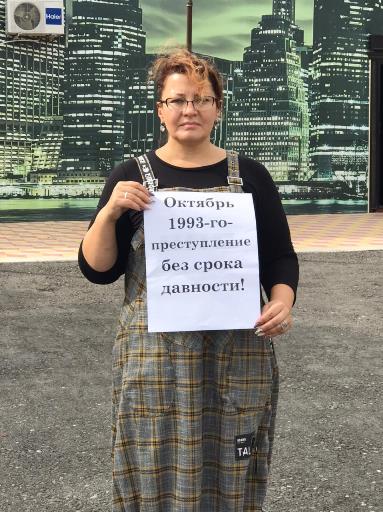 Haier
Октябрь
1993-го-
преступление
без срока
давности!
TAL